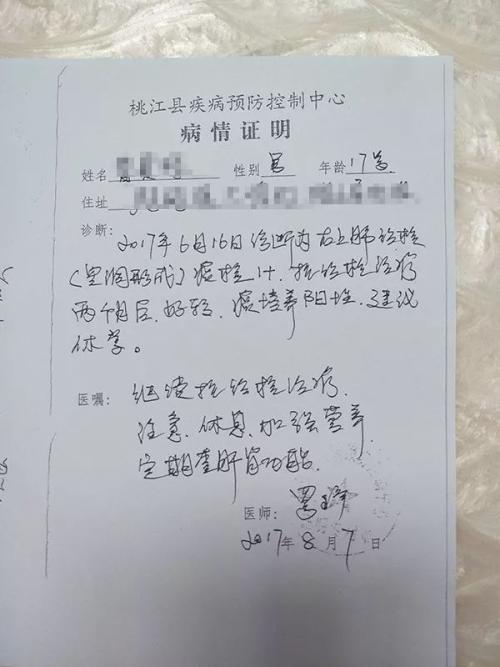 桃江县疾病预防控制中心
病情证明
姓名 性别 男 年龄 17岁
住址
诊断: 2017年6月16日诊断为右上肺结核
(空洞形成)痰检1+, 抗结核治疗
两个月后,好转,痰培养阳性,建议
休学。
医嘱: 继续抗结核治疗,
注意休息,加强营养,
定期查肝肾功能。
医师:
2017年8月7日